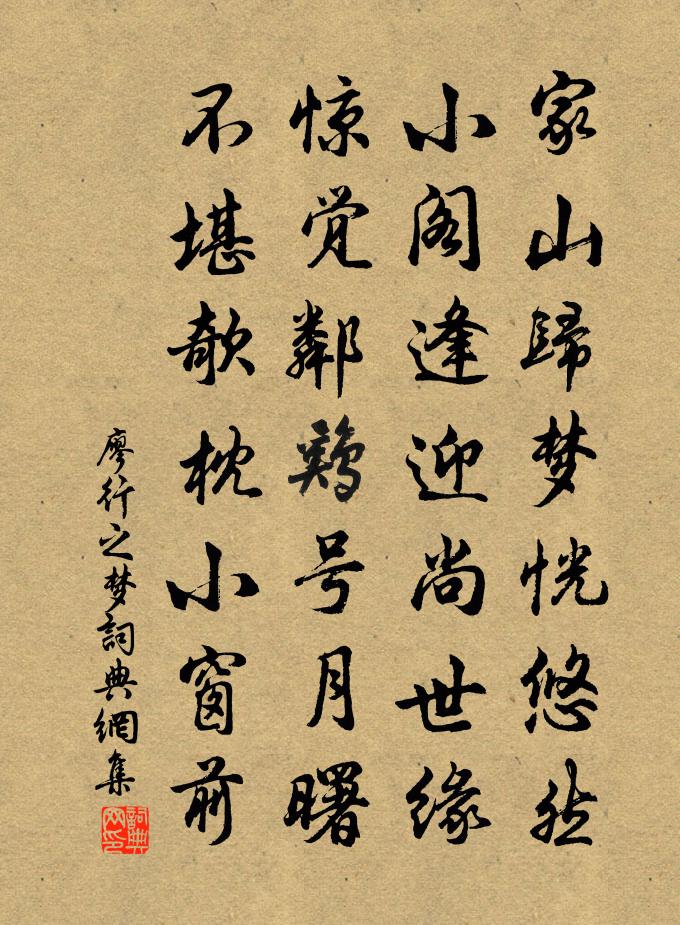 家山歸梦恍悠然
小阁逢迎尚世缘
惊觉鄰鸡号月曙
不堪欹枕小窗前
廖行之梦詞典網集
詞典网印